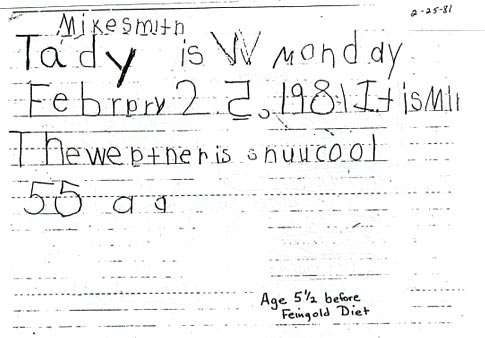 Mikesmith
2-25-81
Tady is W monday
Febrpry 25, 1981 It is Mli
Thewepther is snuucool
55 a a
Age 5 1/2 before
Feingold Diet